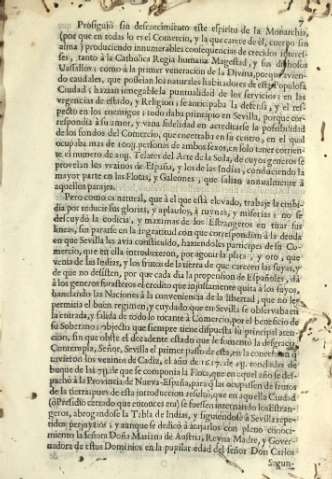 7
Prosiguió sin descaecimiento este espiritu de la Monarchia,
(por que en todo lo es el Comercio, y la que carece de él, cuerpo sin
alma) produciendo innumerables consequencias de crecidos interes-
ses, tanto à la Catholica Regia humana Magestad, y sus dichosos
Vassallos: como à la primer veneracion de la Divina, porque avien-
do caudales, que posseian los naturales habitadores de esta populosa
Ciudad; hazian innegable la puntualidad de los servicios; en las
urgencias de estado, y Religion; se anticipaba la defensa, y el res-
pecto en los enemigos; todo daba principio en Sevilla, porque cor-
respondia à su amor, y vana fidelidad en acreditarse la possibilidad
de los fondos del Comercio, que encerraba en su centro, en el qual
ocupaba mas de personas de ambos sexos, en solo tener corrien-
te el numero de Telares del Arte de la Seda, de cuyos generos se
proveían los vezinos de España, y los de las Indias, conduciendo la
mayor parte en las Flotas, y Galeones, que salian annualmente à
aquellos parajes.
Pero como es natural, que à el que està elevado, trabaje la embi-
dia por reducir sus glorias, y aplausos, à ruynas, y miserias; no se
descuydò la codicia, y maximas de los Estrangeros en tirar sus
lineas, sin pararse en la ingratitud con que correspondian à la deuda
en que Sevilla les avia constituido, haziendoles participes de su Co-
mercio, que en ella introduxeron, por agotar la plata, y oro, que
venia de las Indias, y los frutos de la tierra de que carecen las suyas, y
de que no desisten, por que cada dia la propension de Españoles, dà
à los generos forasteros el credito que injustamente quita à los suyos,
hanelando las Naciones à la conveniencia de la libertad, que no les
permitia el buen regimen, y cuydado que en Sevilla se observaba en
la entrada, y salida de todo lo tocante à Comercio, por el beneficio de
su Soberano; objecto que siempre tiene dispuesta su principal aten-
cion, sin que obste el decadente estado que le fomentò la desgracia.
Contempla, Señor, Sevilla el primer passo de esta, en la concession
tuvieron los vezinos de Cadiz, el año de de
buque de las de que se componia la Flota, que en aquel año se des-
pachò à la Provincia de Nueva-España, para que las ocupassen de frutos
de la tierra; pues de esta introduccion resultò, que en aquella Ciudad
(à Presidio cerrado que entonces era) se fuessen internando los Estran-
geros, abrogandose la Tabla de Indias, y siguiendose à Sevilla repe-
tidos perjuycios; y aunque se dedicò à atajarlos con pleno conoci-
miento la Señora Doña Mariana de Austria, Reyna Madre, y Gover-
nadora de estos Dominios en la pupilar edad del Señor Don Carlos
Segun-